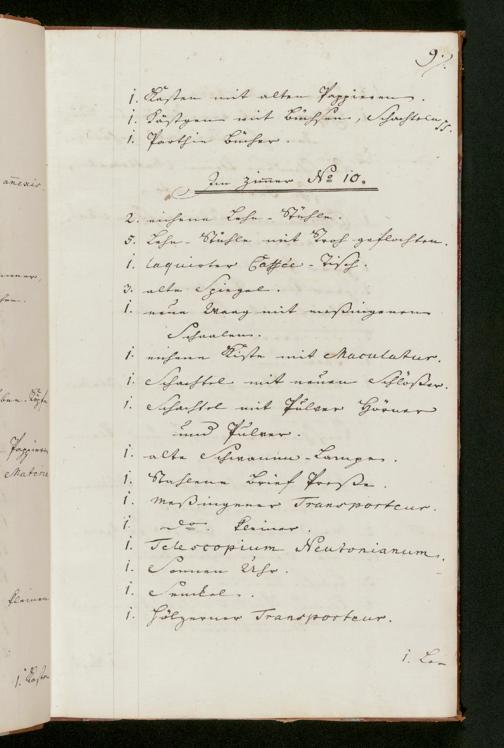 9.
1. Kasten mit alten Pappieren.
1. Kästgen mit Büchsen, Schachteln
1. Parthie Bücher.
Im Zimer No 10.
2. eichene Lehn-Stühle.
5. Lehn-Stühle mit Stroh geflochten.
1. laquirter Caffée-Tisch.
3. alte Spiegel.
1. neue Waag mit meßingenen
Schaalen.
1. eichene Kiste mit Maculatur.
1. Schachtel mit neuen Schlößer.
1. Schachtel mit Pulver Hörner
und Pulver.
1. alte Lampe.
1. Stahlene Brief Preße.
1. meßingener Transporteur.
1. do. kleiner.
1. Telescopium Neutonianum.
1. Sonnen Uhr.
1. Senckel.
1. hölzerner Transporteur.
annexis.
Pappieren
kleinen
1. Kasten